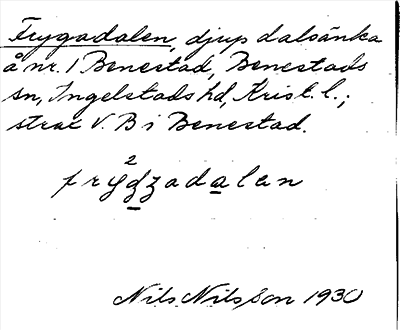 Frygadalen, djup dalsänka
å nr. 1 Benestad, Benestads
sn, Ingelstads hd, Krist. l.;
strax V. B i Benestad.
2
frydzadalan
Nils Nilsson 1930